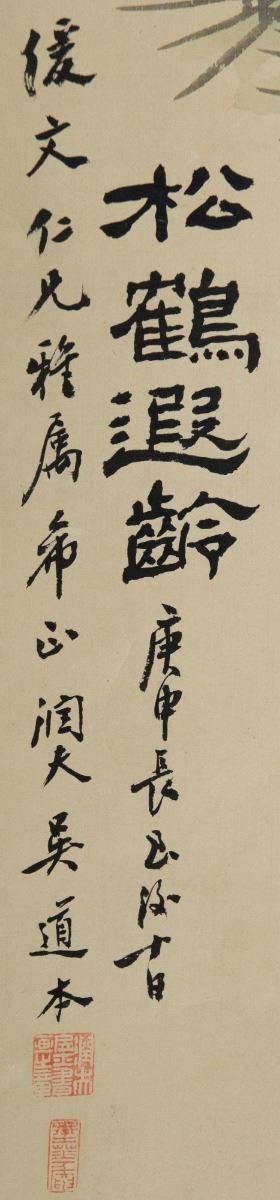 松鶴遐齡 庚申長至後十日
緩文仁兄雅属希正 潤夫吳道本